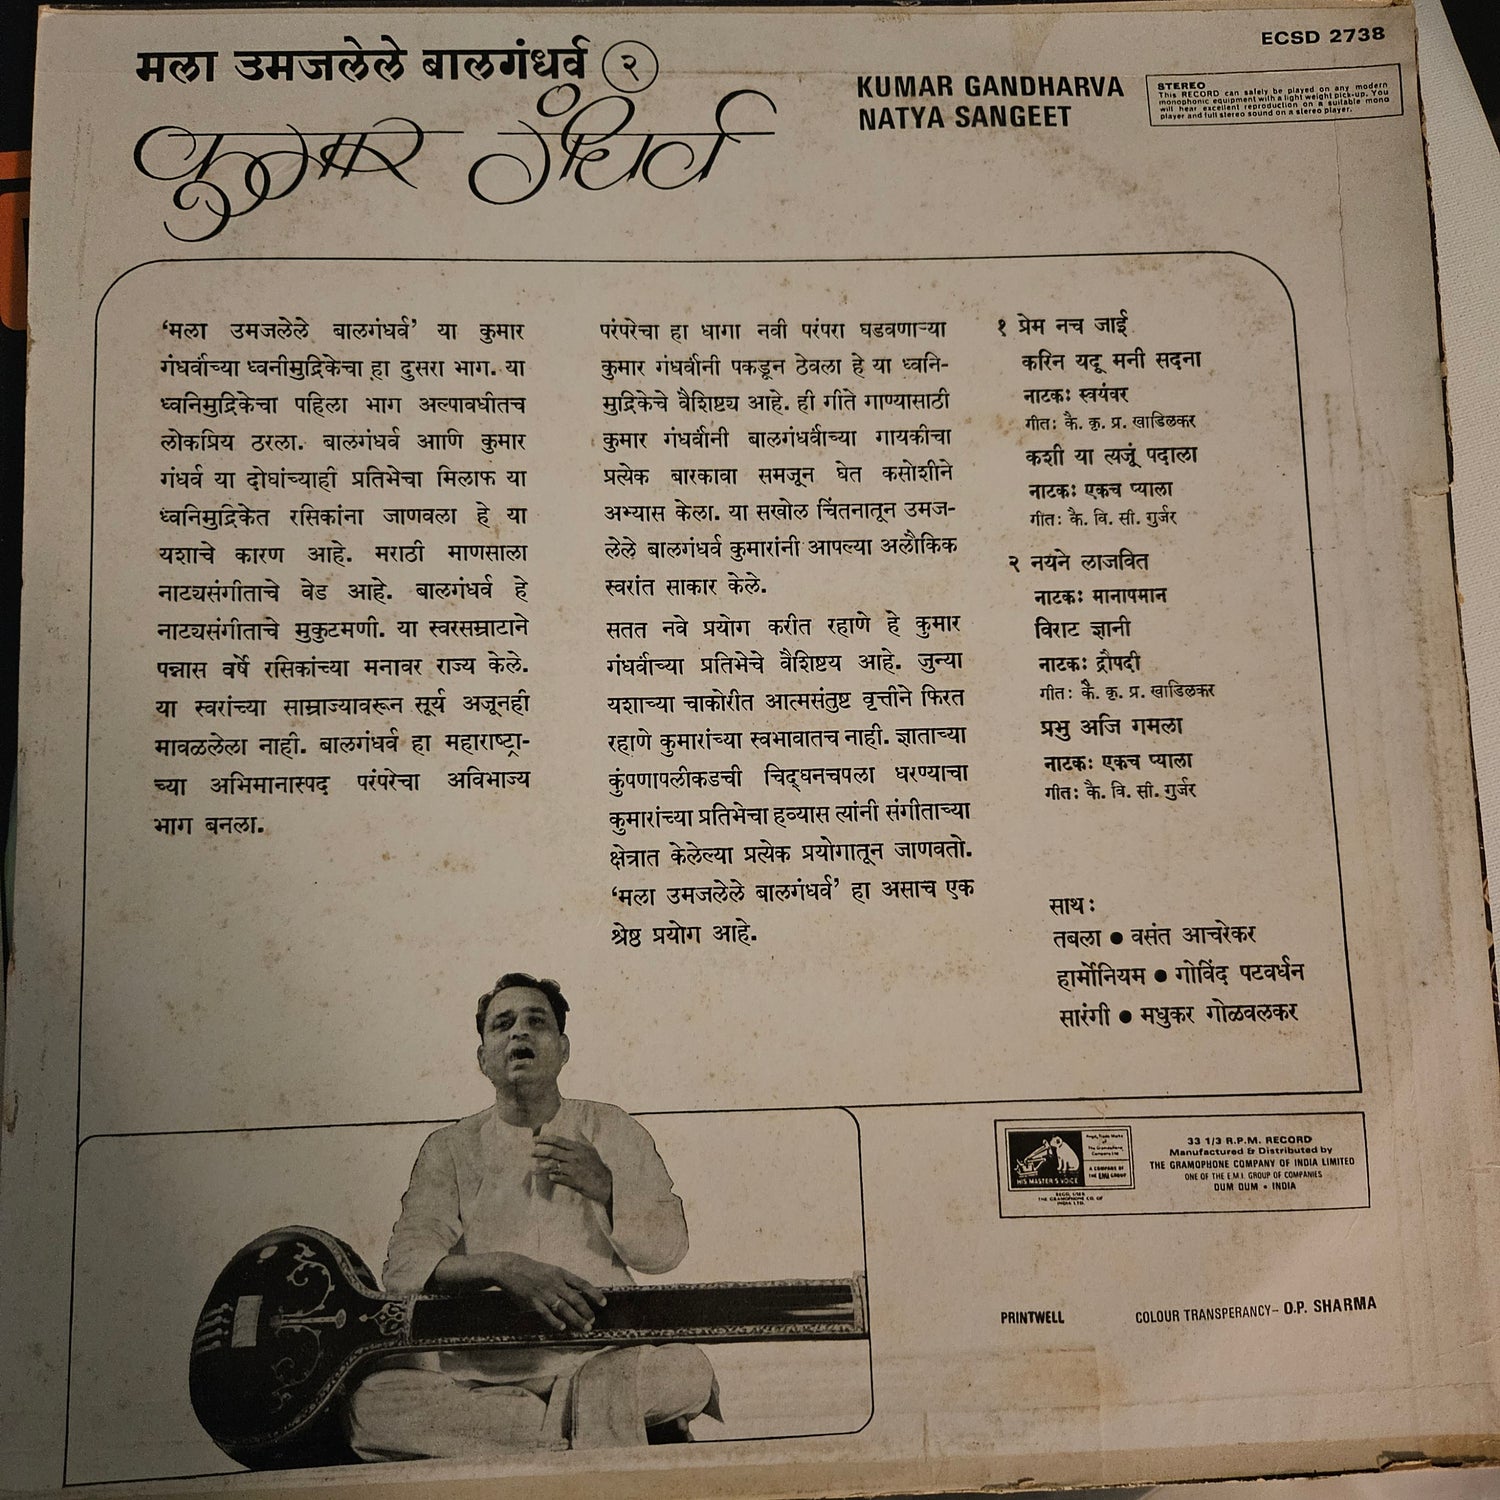 ECSD 2738
मला उमजलेले बालगंधर्व २
कुमार गंधर्व
KUMAR GANDHARVA
NATYA SANGEET
STEREO
This RECORD can safely be played on any modern
monophonic equipment with a light weight pick-up. You
will hear excellent reproduction on a suitable mono
player and full stereo sound on a stereo player.
‘मला उमजलेले बालगंधर्व’ या कुमार
गंधर्वांच्या ध्वनीमुद्रिकेचा हा दुसरा भाग. या
ध्वनिमुद्रिकेचा पहिला भाग अल्पावधीतच
लोकप्रिय ठरला. बालगंधर्व आणि कुमार
गंधर्व या दोघांच्याही प्रतिभेचा मिलाफ या
ध्वनिमुद्रिकेत रसिकांना जाणवला हे या
यशाचे कारण आहे. मराठी माणसाला
नाट्यसंगीताचे वेड आहे. बालगंधर्व हे
नाट्यसंगीताचे मुकुटमणी. या स्वरसम्राटाने
पन्नास वर्षे रसिकांच्या मनावर राज्य केले.
या स्वरांच्या साम्राज्यावरून सूर्य अजूनही
मावळलेला नाही. बालगंधर्व हा महाराष्ट्रा-
च्या अभिमानास्पद परंपरेचा अविभाज्य
भाग बनला.
परंपरेचा हा धागा नवी परंपरा घडवणाऱ्या
कुमार गंधर्वांनी पकडून ठेवला हे या ध्वनि-
मुद्रिकेचे वैशिष्ट्य आहे. ही गीते गाण्यासाठी
कुमार गंधर्वांनी बालगंधर्वांच्या गायकीचा
प्रत्येक बारकावा समजून घेत कसोशीने
अभ्यास केला. या सखोल चिंतनातून उमज-
लेले बालगंधर्व कुमारांनी आपल्या अलौकिक
स्वरांत साकार केले.
सतत नवे प्रयोग करीत रहाणे हे कुमार
गंधर्वांच्या प्रतिभेचे वैशिष्टय आहे. जुन्या
यशाच्या चाकोरीत आत्मसंतुष्ट वृत्तीने फिरत
रहाणे कुमारांच्या स्वभावातच नाही. ज्ञाताच्या
कुंपणापलीकडची चिद्घनचपला धरण्याचा
कुमारांच्या प्रतिभेचा हव्यास त्यांनी संगीताच्या
क्षेत्रात केलेल्या प्रत्येक प्रयोगातून जाणवतो.
‘मला उमजलेले बालगंधर्व’ हा असाच एक
श्रेष्ठ प्रयोग आहे.
१ प्रेम नच जाई
करिन यदू मनी सदना
नाटक: स्वयंवर
गीत: कै. कृ. प्र. खाडिलकर
कशी या त्यजूं पदाला
नाटक: एकच प्याला
गीत: कै. वि. सी. गुर्जर
२ नयने लाजवित
नाटक: मानापमान
विराट ज्ञानी
नाटक: द्रौपदी
गीत: कै. कृ. प्र. खाडिलकर
प्रभु अजि गमला
नाटक: एकच प्याला
गीत: कै. वि. सी. गुर्जर
साथ:
तबला ● वसंत आचरेकर
हार्मोनियम ● गोविंद पटवर्धन
सारंगी ● मधुकर गोळवलकर
HIS MASTER'S VOICE
33 1/3 R.P.M. RECORD
Manufactured & Distributed by
THE GRAMOPHONE COMPANY OF INDIA LIMITED
ONE OF THE E.M.I. GROUP OF COMPANIES
DUM DUM • INDIA
PRINTWELL
COLOUR TRANSPERANCY- O.P. SHARMA